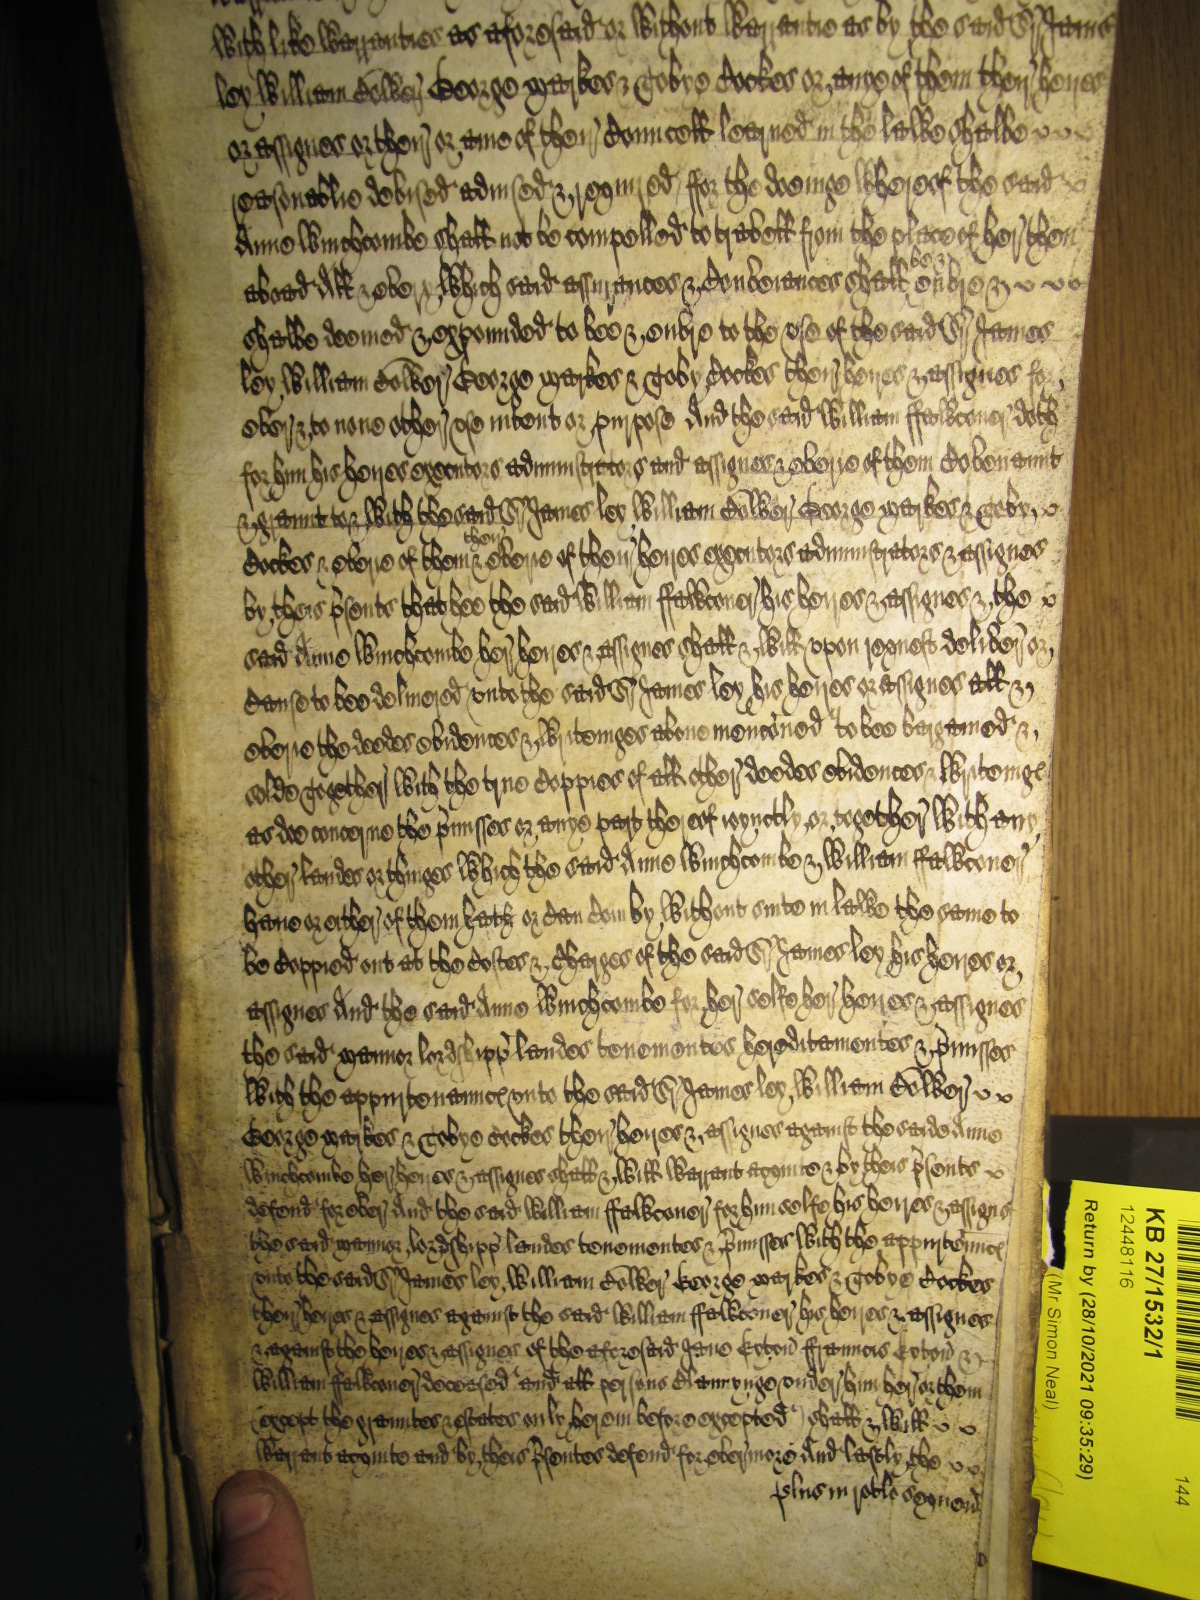 with like warranties as aforesaid or without warrantie as by the said Sr James
ley William Tolwer George markes & Tobye Cockes or anye of them their heires
or assignes or their or anie of their Councell learned in the lawe shalbe
reasonablie devised advised & required ffor the doeinge whereof the said
Anne Winchcombe shall not be compelled to travell from the place of her then
aboad All & every which said assurances & Conveiances shall bee & enure &
shalbe deemed & expounded to bee & enure to the use of the said Sr James
ley William Tolwer George markes & Toby Cockes their heires & assignes for
ever & to none other use intent or purpose And the said William ffalkconer doth
for him his heires executors administrators and assignes & everie of them Covenannt
& grannt to & with the said Sr James ley William Tolwer George markes & Toby
Cockes & everie of them & their everie of their heires executors administrators & assignes
by theis psents that bee the said William ffalkconer his heires & assignes & the
said Anne Winchcombe her heires & assignes shall & will upon request deliver or
Cause to bee delivered unto the said Sr James ley his heires or assignes all &
everie the deedes evidences & writeinges above menconed to bee bargained &
solde together with the true Coppies of all other deedes evidences & writeinges
as doe concerne the pmisses or anye part thereof ioynctly or together with any
other landes or thinges which the said Anne Winchcombe & William ffalkconer
have or either of them hath or Can Com by without suite in lawe the same to
be Coppied out at the Costes & Charges of the said Sr James ley his heires or
assignes And the said Anne Winchcombe for her selfe her heires & assignes
the said mannor lordshipp landes tenementes hereditamentes & pmisses
with the appurtenannces unto the said Sr James ley William Tolwer
George markes & Tobye Cockes their heires & assignes against the saide Anne
Winchcombe her heires & assignes shall & will warrant acquite & by theis psents
defend for ever And the said William ffalkconer for him selfe his heires & assignes
the said mannor lordshipp landes tenementes & pmisses with the appurtennces
unto the said Sr James ley William Tolwer George markes & Tobye Cockes
their heires & assignes against the said William ffalkconer his heires & assignes
& against the heires & assignes of the aforesaid Jane Eyton ffrancis Eyton &
William ffalkconer deceased and all persons Claimynge under him her or them
(except the granntes & estates only herein before excepted) shall & will
warrant acquite and by theis psentes defend for evermore And lastly the
plus in rotlo sequend
KB 27/1532/1
12448116
144
Return by (28/10/2021 09:35:29)
(Mr Simon Neal)